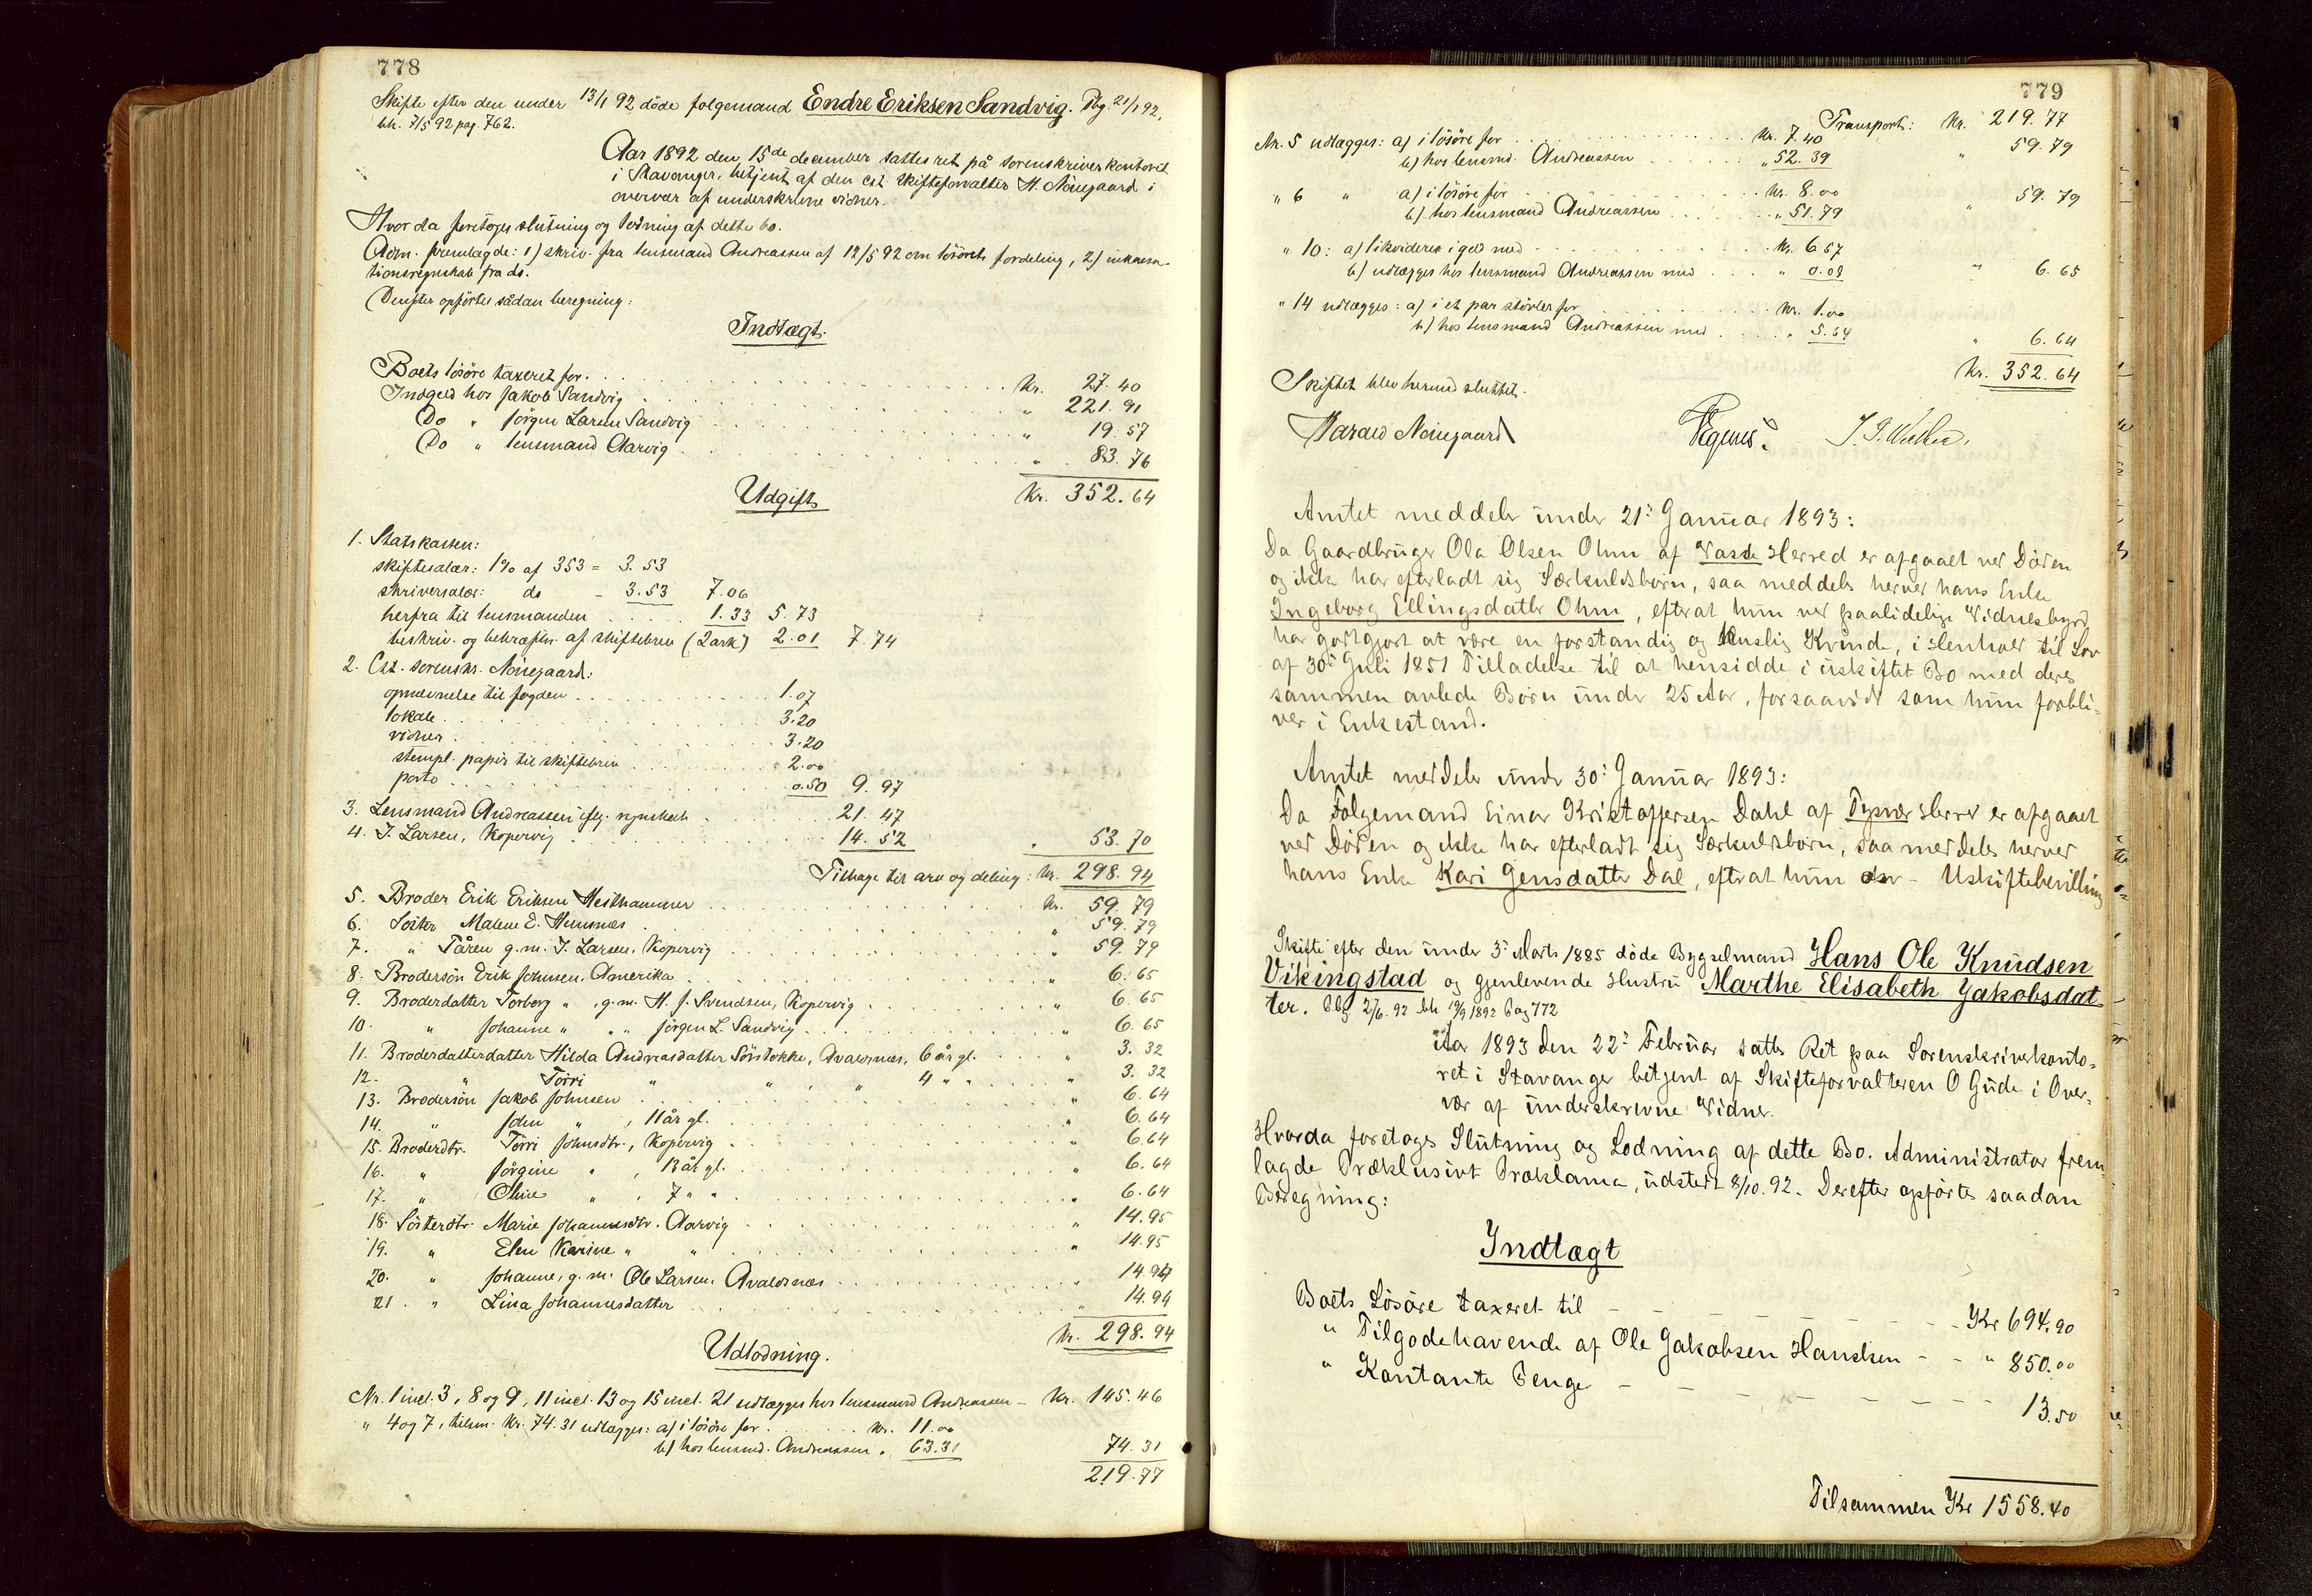 778
Skifte efter den under 13/1 92 döde folgemand Endre Eriksen Sandvig. Obg. 21/1 92,
bh. 7/5 92 pag. 762.
Aar 1892 den 15de december sattes ret på sorenskriverkontoret
i Stavanger, betjent af den cst. skifteforvalter H. Nörregaard i
overvær af underskrevne vidner.
Hvorda foretoges slutning og lodning af dette bo.
Adm. fremlagde: 1) skriv. fra lensmand Andreassen af 12/5 92 om lösörets fordeling, 2) inkassa-
tionsregnskab fra do.
Derefter opförtes sådan beregning:
Indtægt.
Boets lösöre taxeret for . . . Kr. 27.40
Indgjeld hos Jakob Sandvig . . . " 221.91
Do " Jörgen Larsen Sandvig . . . " 19.57
Do " lensmand Aarvig . . . " 83.76
Kr. 352.64
Udgift
1. Statskassen:
skiftesalær: 1% af 353 = 3.53
skriversalær: do - 3.53 7.06
herfra til lensmanden . . . 1.33 5.73
beskriv. og bekræftn. af skiftebrev (2 ark) 2.01 7.74
2. Cst. sorenskr. Nörregaard:
opnævnelse til fogden . . . 1.07
lokale . . . 3.20
vidner . . . 3.20
stempl. papir til skiftebrev . . . 2.00
porto . . . 0.50 9.97
3. Lensmand Andreassen iflg. regnskab . . . 21.47
4. J. Larsen, Kopervig . . . 14.52 " 53.70
Tilbage til arv og deling: Kr. 298.94
5. Broder Erik Eriksen Meilhammer . . . Kr. 59.79
6. Söster Malene E. Hemnæs . . . " 59.79
7. " Tåren g.m. J. Larsen, Kopervig . . . " 59.79
8. Brodersön Erik Johnsen, Amerika . . . " 6.65
9. Broderdatter Torborg " , g.m. H. J. Svendsen, Kopervig . . . " 6.65
10. " Johanne " " " Jörgen L. Sandvig . . . " 6.65
11. Broderdatterdatter Hilda Andreasdatter Sörstokke, Avaldsnæs, 6 år gl. . . . " 3.32
12. " Torri " " , " 4 " " . . . " 3.32
13. Brodersön Jakob Johnsen . . . " 6.64
14. " John " , 11 år gl. . . . " 6.64
15. Broderdtr. Torri Johnsdtr., Kopervig . . . " 6.64
16. " Jörgine " , 13 år gl. . . . " 6.64
17. " Oline " , 7 " " . . . " 6.64
18. Sösterdtr. Marie Johannesdtr. Aarvig . . . " 14.95
19. " Elen Karine " " . . . " 14.95
20. " Johanne, g.m. Ole Larsen, Avaldsnæs . . . " 14.94
21. " Lina Johannesdatter . . . " 14.94
Kr. 298.94
Udlodning.
Nr. 1 incl. 3, 8 og 9, 11 incl. 13 og 15 incl. 21 udlægges hos lensmand Andreassen - Kr. 145.46
" 4 og 7, tilsm. Kr. 74.31 udlægges: a) i lösöre for . . . Kr. 11.00
b) hos lensmd. Andreassen " 63.31 74.31
219.77
779
Transport: Kr. 219.77
Nr. 5 udlægges: a) i lösöre for . . . Kr. 7.40
b) hos lensmd. Andreassen . . . " 52.39 " 59.79
" 6 " a) i lösöre for . . . Kr. 8.00
b) hos lensmand Andreassen . . . " 51.79 " 59.79
" 10: a) likvideres i gjeld med . . . Kr. 6.57
b) udlægges hos lensmand Andreassen med . . . " 0.08 " 6.65
" 14 udlægges: a) i et par stövler for . . . Kr. 1.00
b) hos lensmand Andreassen med . . . " 5.64 " 6.64
Kr. 352.64
Skiftet blev hermed sluttet.
Harald Nörregaard
Amtet meddeler under 21: Januar 1893:
Da Gaardbruger Ola Olsen Ohm af Vasse Herred er afgaaet ved Döden
og ikke har efterladt sig Særkuldsbörn, saa meddeles herved hans Enke
Ingeborg Ellingsdatter Ohm, efterat hun ved paalidelige Vidnesbyrd
har godtgjort at være en forstandig og huslig Kvinde, i Henhold til Lov
af 30: Juli 1851 Tilladelse til at hensidde i uskiftet Bo med deres
sammen avlede Börn under 25 Aar, forsaavidt som hun forbli-
ver i Enkestand.
Amtet meddeler under 30: Januar 1893:
Da Folgemand Einar Kristoffersen Dahl af Tysvær Herred er afgaaet
ved Döden og ikke har efterladt sig Særkuldsbörn, saa meddeles herved
hans Enke Kari Jensdatter Dal, efterat hun osv - Uskiftebevilling
Skifte efter den under 3: Marts 1885 döde Bygselmand Hans Ole Knudsen
Vikingstad og gjenlevende Hustru Marthe Elisabeth Jakobsdat
ter. Obg 2/6. 92 bh 19/9 1892 Pag 772
Aar 1893 den 22: Februar sattes Ret paa Sorenskriverkonto-
ret i Stavanger betjent af Skifteforvalteren O Gude i Over-
vær af underskrevne Vidner.
Hvorda foretoges Slutning og Lodning af dette Bo. Administrator frem-
lagde Præklusivt Proklama, udstedt 8/10. 92. Derefter opförtes saadan
Beregning:
Indtægt
Boets Lösöre taxeret til - - - Kr 694.90
" Tilgodehavende af Ole Jakobsen Handsen - - " 850.00
" Kontante Penge - - - 13.50
Tilsammen Kr 1558.40